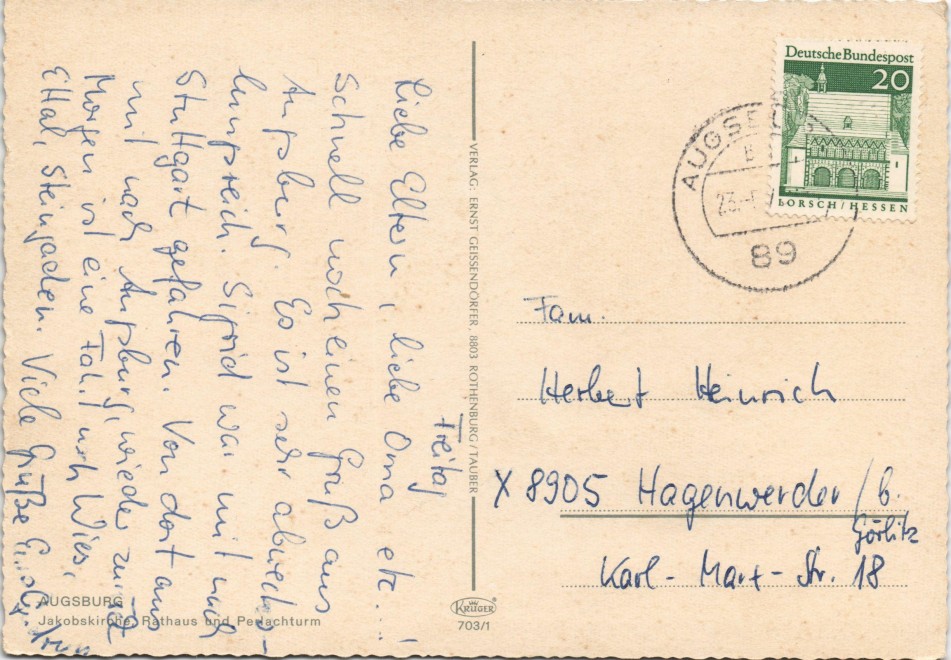 Freitag
Liebe Eltern, liebe Oma etc..!
Schnell noch einen Gruß aus
Augsburg. Es ist sehr abwechs-
lungsreich. Sigrid war mit nach
Stuttgart gefahren. Von dort aus
mit nach Augsburg, wieder zurück
Morgen ist eine Fahrt nach Wies,
Ettal, Steingaden. Viele Grüße
AUGSBURG
Jakobskirche, Rathaus und Perlachturm
VERLAG: ERNST GEISSENDÖRFER, 8803 ROTHENBURG/TAUBER
KRÜGER
703/1
Deutsche Bundespost
20
LORSCH/HESSEN
89
Fam.
Herbert Heinrich
X 8905 Hagenwerder / b.
Görlitz
Karl-Marx-Str. 18